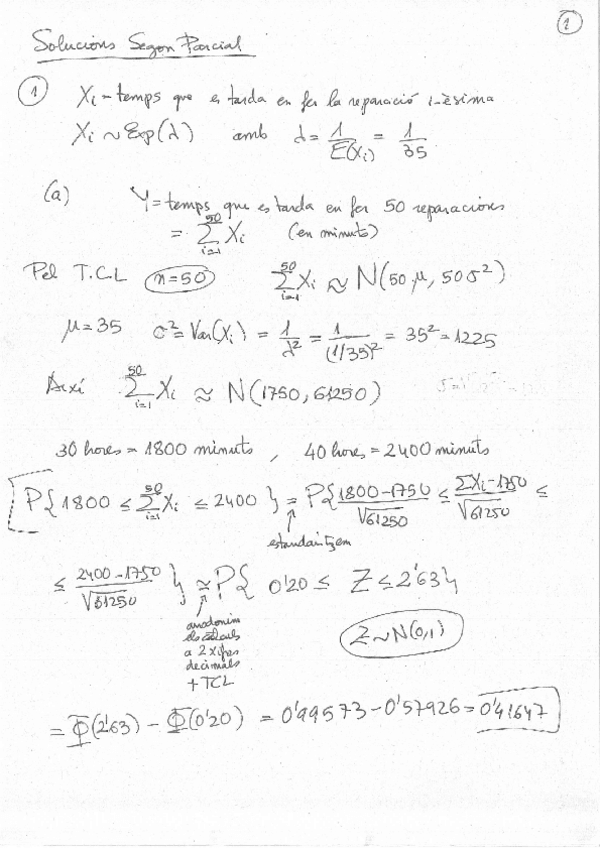 1
Solucions Segon Parcial
1 Xi = temps que es tarda en fer la reparació i-èsima
Xi ~ Exp(λ) amb λ = 1/E(Xi) = 1/35
(a) Y = temps que es tarda en fer 50 reparacions
= ∑_{i=1}^{50} Xi (en minuts)
Pel T.C.L n=50 ∑_{i=1}^{50} Xi ≈ N(50μ, 50σ²)
μ=35 σ²=Var(Xi) = 1/λ² = 1/(1/35)² = 35² = 1225
Així ∑_{i=1}^{50} Xi ≈ N(1750, 61250)
30 hores = 1800 minuts , 40 hores = 2400 minuts
P{1800 ≤ ∑_{i=1}^{50} Xi ≤ 2400} = P{(1800-1750)/√61250 ≤ (∑Xi-1750)/√61250 ≤
estandaritzem
≤ (2400-1750)/√61250} ≈ P{0'20 ≤ Z ≤ 2'63}
arrodonim
els càlculs
a 2 xifres
decimals
+TCL
Z~N(0,1)
= Φ(2'63) - Φ(0'20) = 0'99573 - 0'57926 = 0'41647